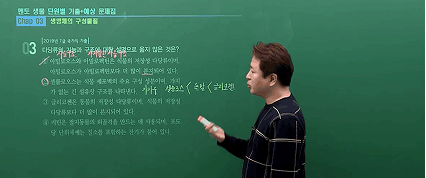 멘토 생물 단원별 기출+예상 문제집
Chap 03 생명체의 구성물질
03 [2019년 7급 국가직 기출]
다당류의 기능과 구조에 대한 설명으로 옳지 않은 것은?
① 아밀로오스와 아밀로펙틴은 식물의 저장성 다당류이며,
아밀로오스가 아밀로펙틴보다 더 많이 분지되어 있다.
② 셀룰로오스는 식물 세포벽의 주요 구성 성분이며, 가지
가 없는 긴 섬유상 구조를 나타낸다.
③ 글리코겐은 동물의 저장성 다당류이며, 식물의 저장성
다당류보다 더 많이 분지되어 있다.
④ 키틴은 절지동물의 외골격을 만드는 데 사용되며, 포도
당 단위체에는 질소를 포함하는 잔기가 붙어 있다.
셀룰로오스 < 녹말 < 글리코겐